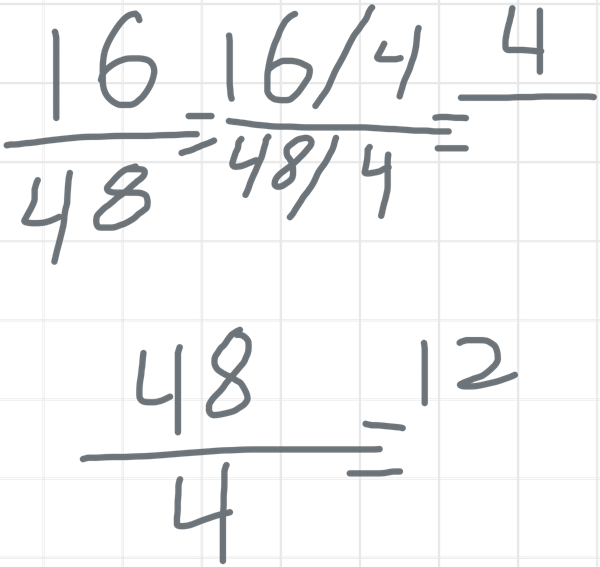 16/48 = (16/4)/(48/4) = 4/
48/4 = 12